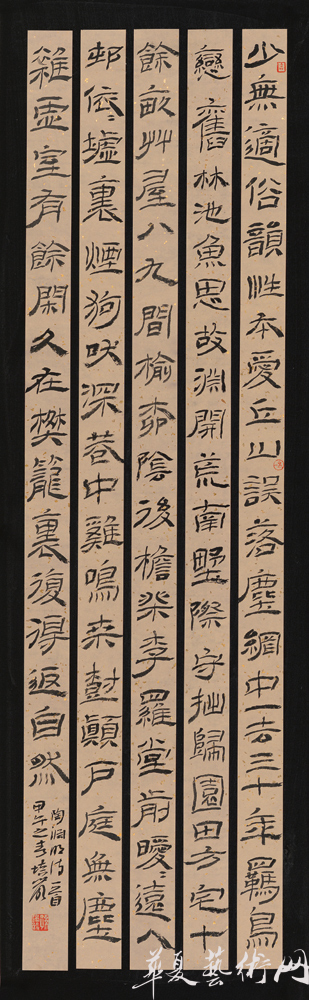 少無適俗韻性本愛丘山誤落塵網中一去三十年羈鳥
戀舊林池魚思故淵開荒南野際守拙歸園田方宅十
餘畝艸屋八九間榆柳陰後檐桃李羅堂前曖〻遠人
邨依〻墟裏煙狗吠深巷中雞鳴桑樹顛戶庭無塵
雜虛室有餘閑久在樊籠裏復得返自然
陶淵明詩一首
甲午之春培
華夏藝術网